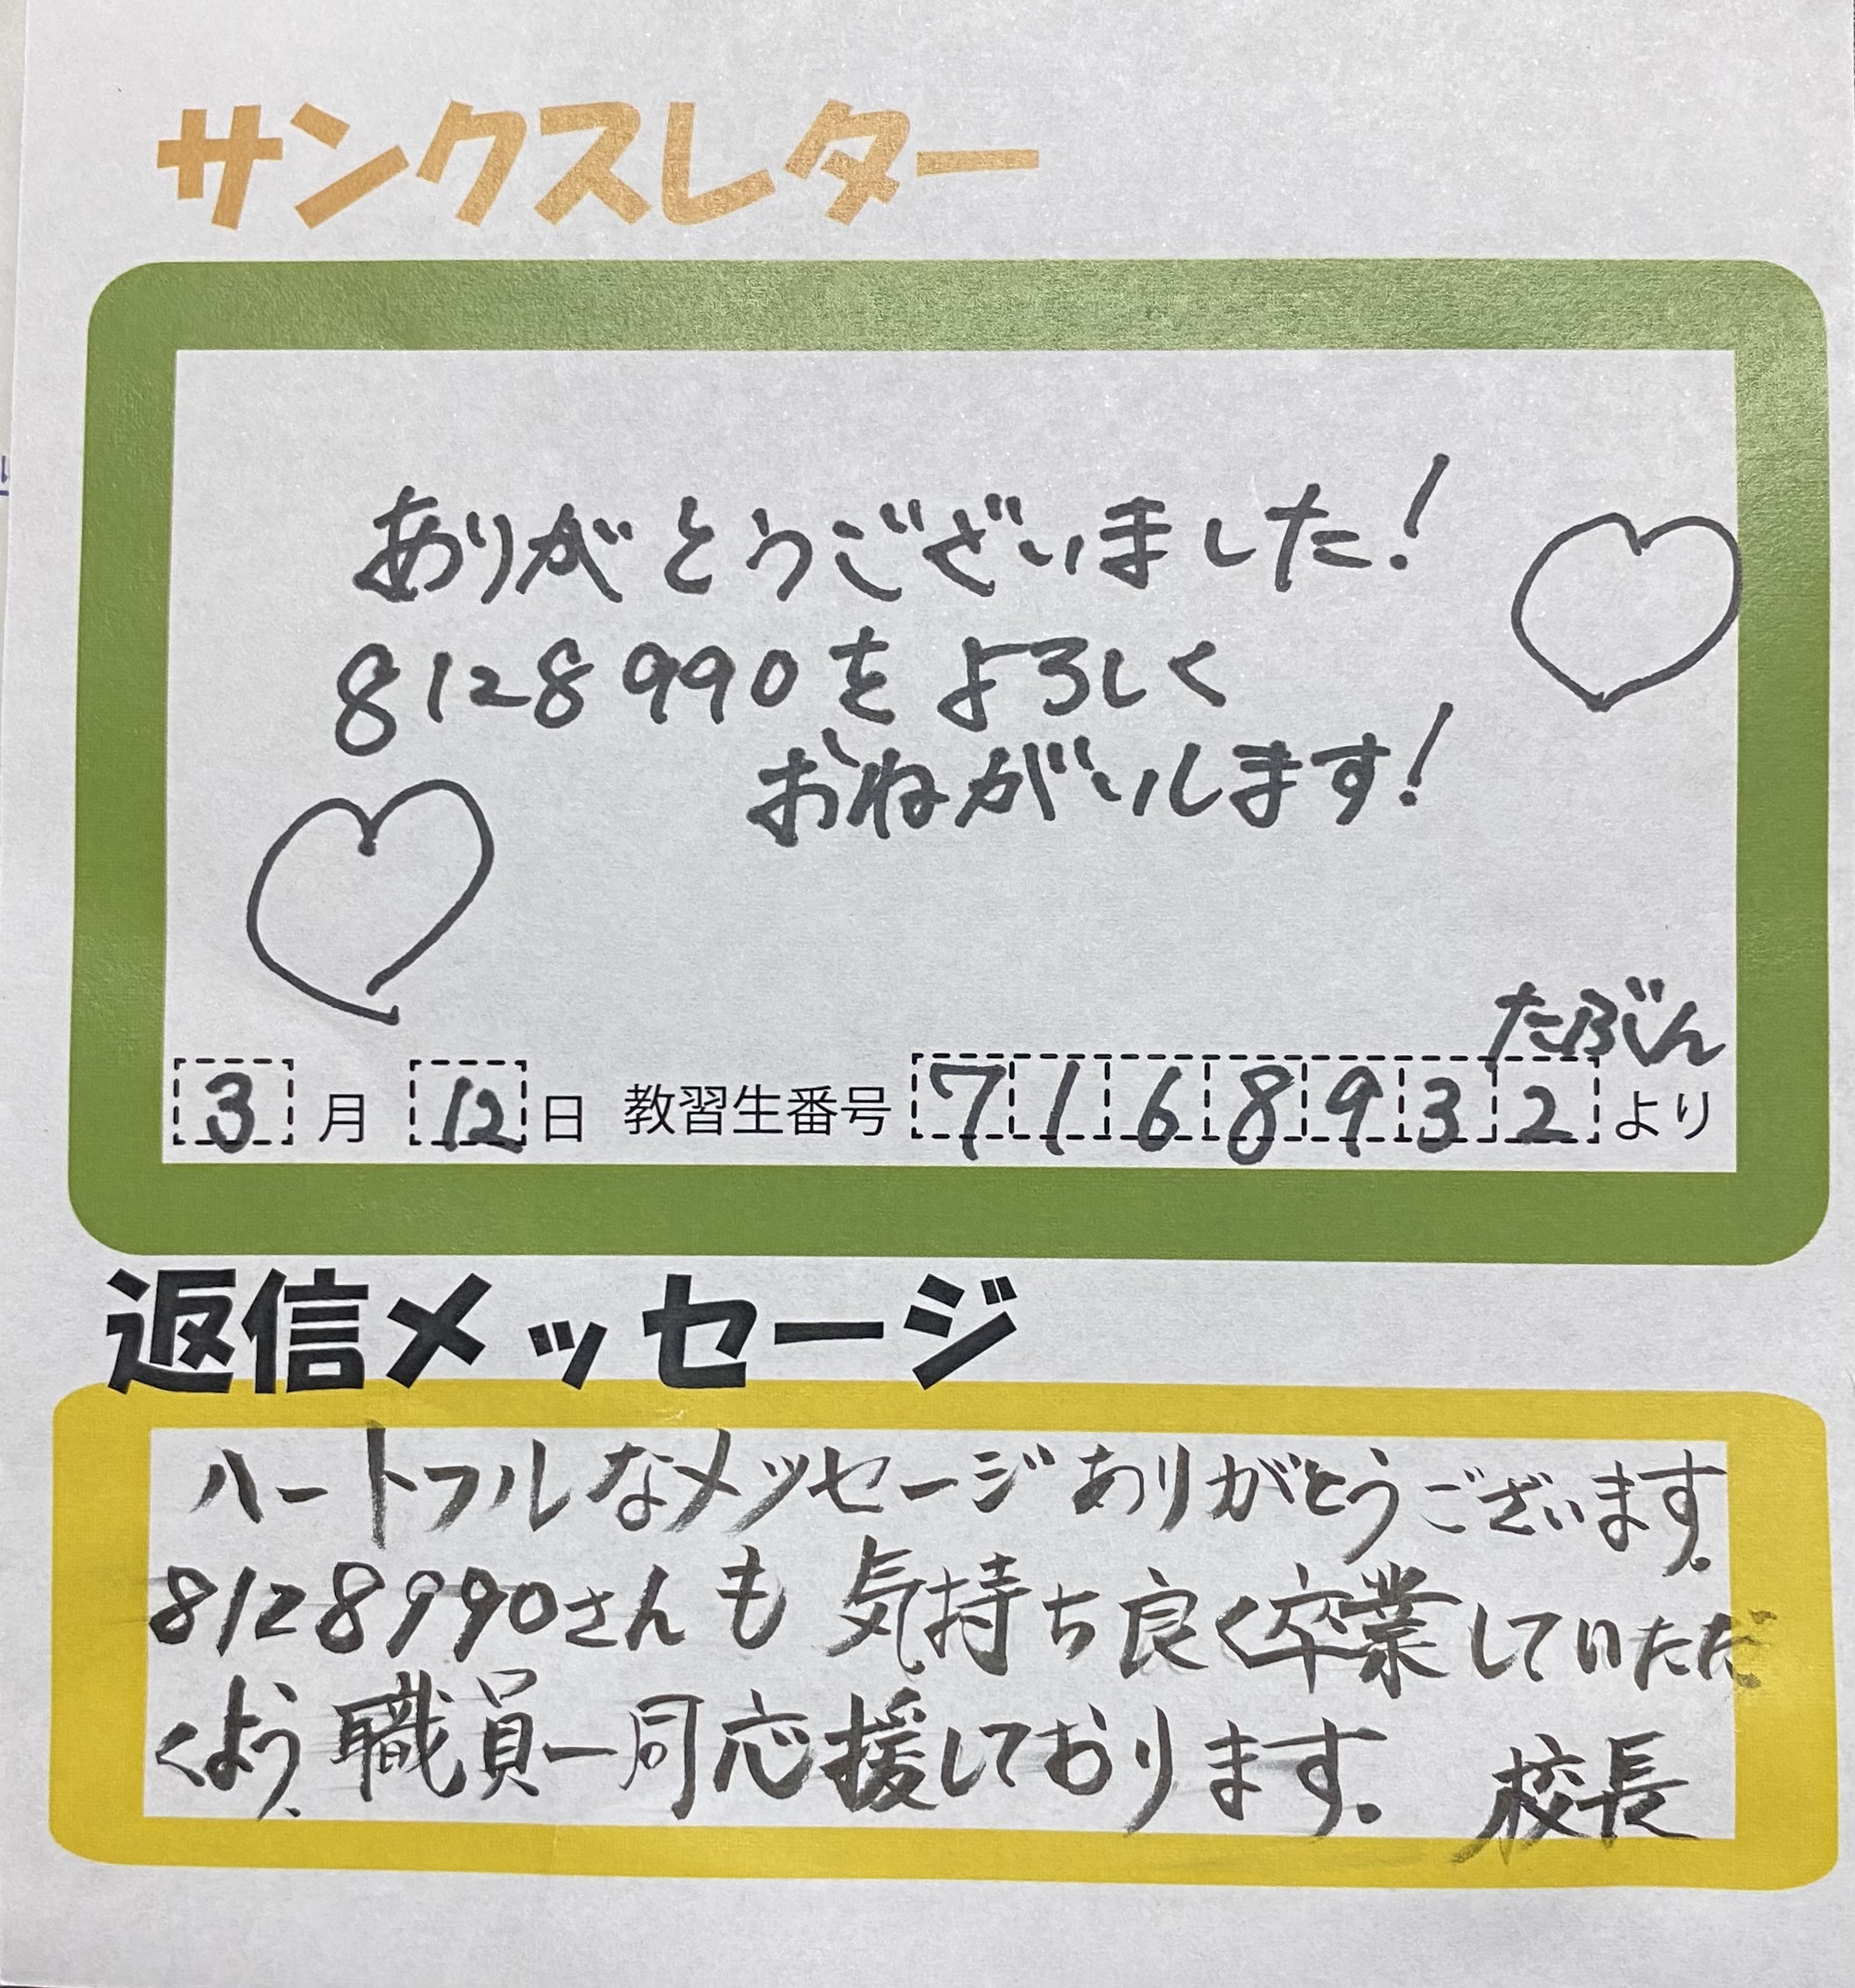 サンクスレター
ありがとうございました!
8128990をよろしく
おねがいします!
たぶん
3月 12日 教習生番号 7168932より
返信メッセージ
ハートフルなメッセージありがとうございます。
8128990さんも気持ち良く卒業していただ
くよう、職員一同応援しております。 校長